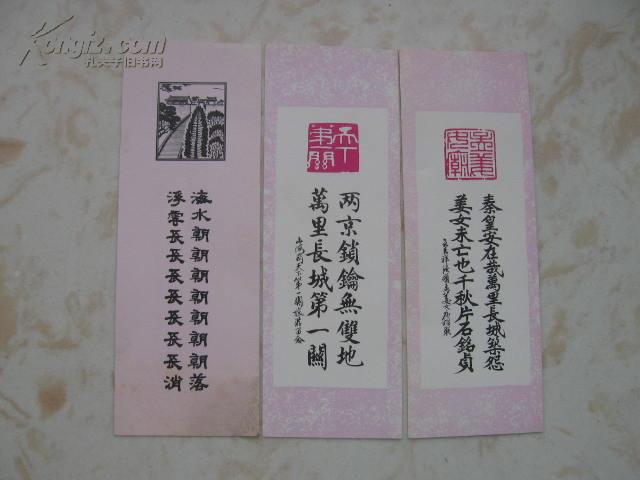 Kongfz.com
孔夫子旧书网
海水朝朝朝朝朝朝朝落
浮雲長長長長長長長消
天下
弟一關
两京鎖鑰無雙地
萬里長城第一關
孟姜
女廟
秦皇安在哉萬里長城築怨
姜女未亡也千秋片石銘貞